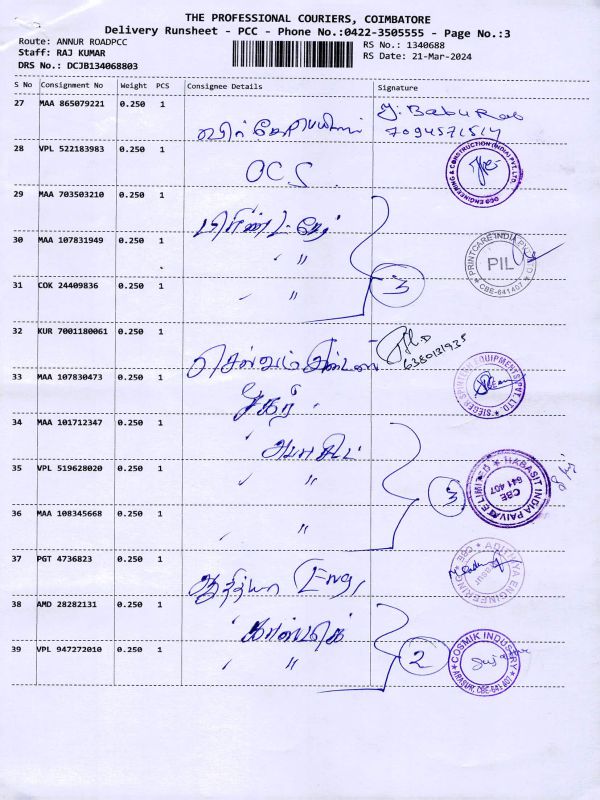 THE PROFESSIONAL COURIERS, COIMBATORE
Delivery Runsheet - PCC - Phone No.:0422-3505555 - Page No.:3
Route: ANNUR ROADPCC
RS No.: 1340688
Staff: RAJ KUMAR
RS Date: 21-Mar-2024
DRS No.: DCJB134068803
S No Consignment No Weight PCS Consignee Details Signature
27 MAA 865079221 0.250 1
7094571514
28 VPL 522183983 0.250 1 OCS
ENGINEERING & CONSTRUCTION (INDIA) PVT. LTD.
29 MAA 703503210 0.250 1
30 MAA 107831949 0.250 1 〃
PRINTCARE INDIA
PIL
CBE-641407
31 COK 24409836 0.250 1 〃
3
32 KUR 7001180061 0.250 1
6380131935
33 MAA 107830473 0.250 1
EQUIPMENTS PVT LTD
34 MAA 101712347 0.250 1
35 VPL 519628020 0.250 1 〃
3
HABASIT INDIA PRIVATE LIMITED
CBE
641 407
36 MAA 108345668 0.250 1 〃
37 PGT 4736823 0.250 1 ஆதித்யா Engg
ADITHYA ENGINEERING
38 AMD 28282131 0.250 1 காஸ்மிக்
39 VPL 947272010 0.250 1 〃
2
COSMIK INDUSTRY
ARASUR, CBE-641407